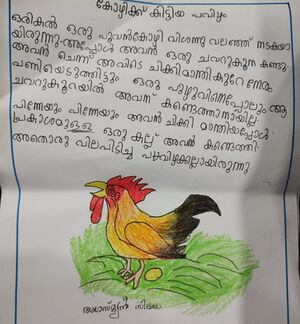 കോഴിക്ക് കിട്ടിയ പവിഴം
ഒരിക്കൽ ഒരു പൂവൻകോഴി വിശന്നു വലഞ്ഞ് നടക്കുക
യിരുന്നു. അപ്പോൾ അവൻ ഒരു ചവറുകൂന കണ്ടു.
അവൻ ചെന്ന് അവിടെ ചിക്കിമാന്തികുറേ നേരം
പണിയെടുത്തിട്ടും ഒരു പുഴുവിനെപ്പോലും ആ
ചവറുകൂറയിൽ അവന് കണ്ടെത്താനായില്ല.
പിന്നേയും പിന്നേയും അവൻ ചിക്കി മാന്തിയപ്പോൾ
പ്രകാശമുള്ള ഒരു കല്ല് അവൻ കണ്ടെത്തി.
അതൊരു വിലപിടിച്ച പവിഴക്കല്ലായിരുന്നു.